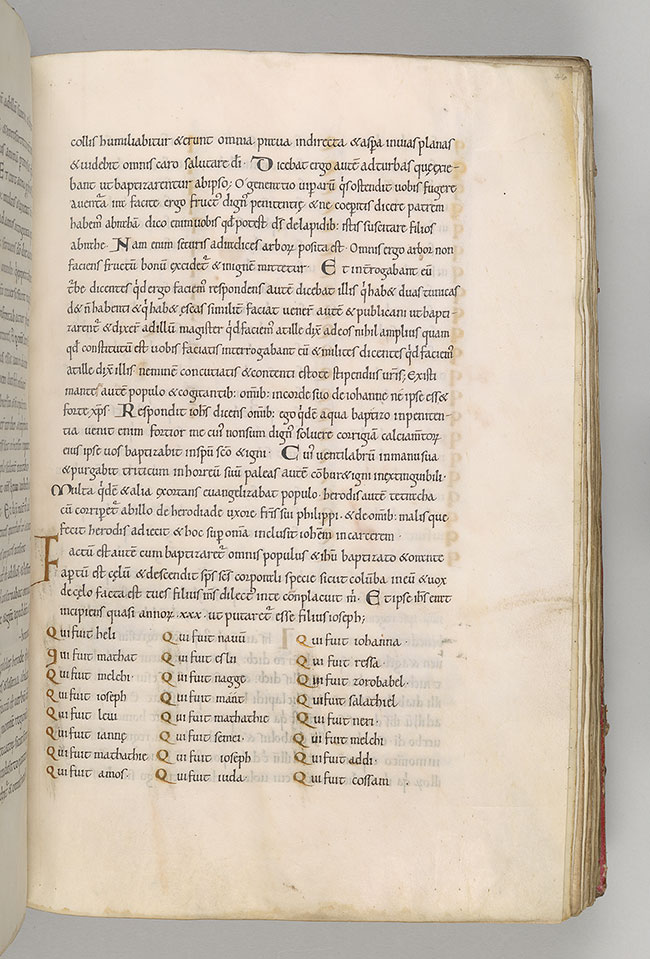 collis humiliabitur & erunt omnia praua indirecta & aspa inuias planas
& uidebit omnis caro salutare di. Dicebat ergo autē adturbas quęexie-
bant ut baptizarentur abipso; O genentio uiparū qs ostendit uobis fugere
auent̄a ira facite ergo fruct' dign' penitentię & ne coeperitis dicere patrem
habem' abrahā dico enim uobis qd potest ds delapidib: istis suscitare filios
abrahe. Nam enim securis adradices arborꝝ posita est. Omnis ergo arbor non
faciens fructū bonū excidet̄ & inignē mittetur. Et int̄rogabant eū
t̄be dicentes qd ergo faciem' respondens autē dicebat illis q hab& duas tunicas
d& n̄ habenti & q hab& escas similit̄ faciat uener̄ autē & publicani ut bapti-
zarent̄ & dixer̄ adillū magister qd faciem' at ille dix̄ adeos nihil amplius quam
qd constitutū est uobis faciatis interrogabant eū & milites dicentes qd faciem'
at ille dix̄ illis neminē concutiatis & contenti estote stipendiis urīs; Existi
mante autē populo & cogitantib: omīb: incorde suo de iohanne ne ipse ess&
forte xps. Respondit iohs dicens omīb: ego qdē aqua baptizo inpeniten-
tia ueniet enim fortior me cui' nonsum dign' soluere corrigiā calciamtoꝝ
eius ipse uos baptizabit inspu sco & igni. Cui' uentilabrū inmanu sua
& purgabit triticum inhorreū suū paleas autē cōbur& igni inextinguibili.
Multa qdē & alia exortans euangelizabat populo. herodis autē tetracha
cū corriperet̄ abillo de herodiade uxore fr̄is sui philippi. & de omīb: malis que
fecit herodis adiecit & hoc sup omia inclusit iohēm incarcerem.
Factū est autē cum baptizaret̄ omnis populus & ihu baptizato & orante
aptū est cęlū & descendit sps scs corporali specie sicut colūba ineū & uox
de cęlo facta est tu es filius ms dilect' inte conplacuit m. Et ipse ihs erat
incipiens quasi annoꝝ .xxx. ut putaret̄ esse filius ioseph;
Qui fuit heli
Qui fuit mathat
Qui fuit melchi
Qui fuit ioseph
Qui fuit leui
Qui fuit iannę
Qui fuit mathathie
Qui fuit amos.
Qui fuit nauū
Qui fuit esli
Qui fuit nagge
Qui fuit maat
Qui fuit mathathie
Qui fuit semei.
Qui fuit ioseph
Qui fuit iuda.
Qui fuit iohanna.
Qui fuit ressa.
Qui fuit zorobabel.
Qui fuit salathiel
Qui fuit neri.
Qui fuit melchi
Qui fuit addi.
Qui fuit cossam.